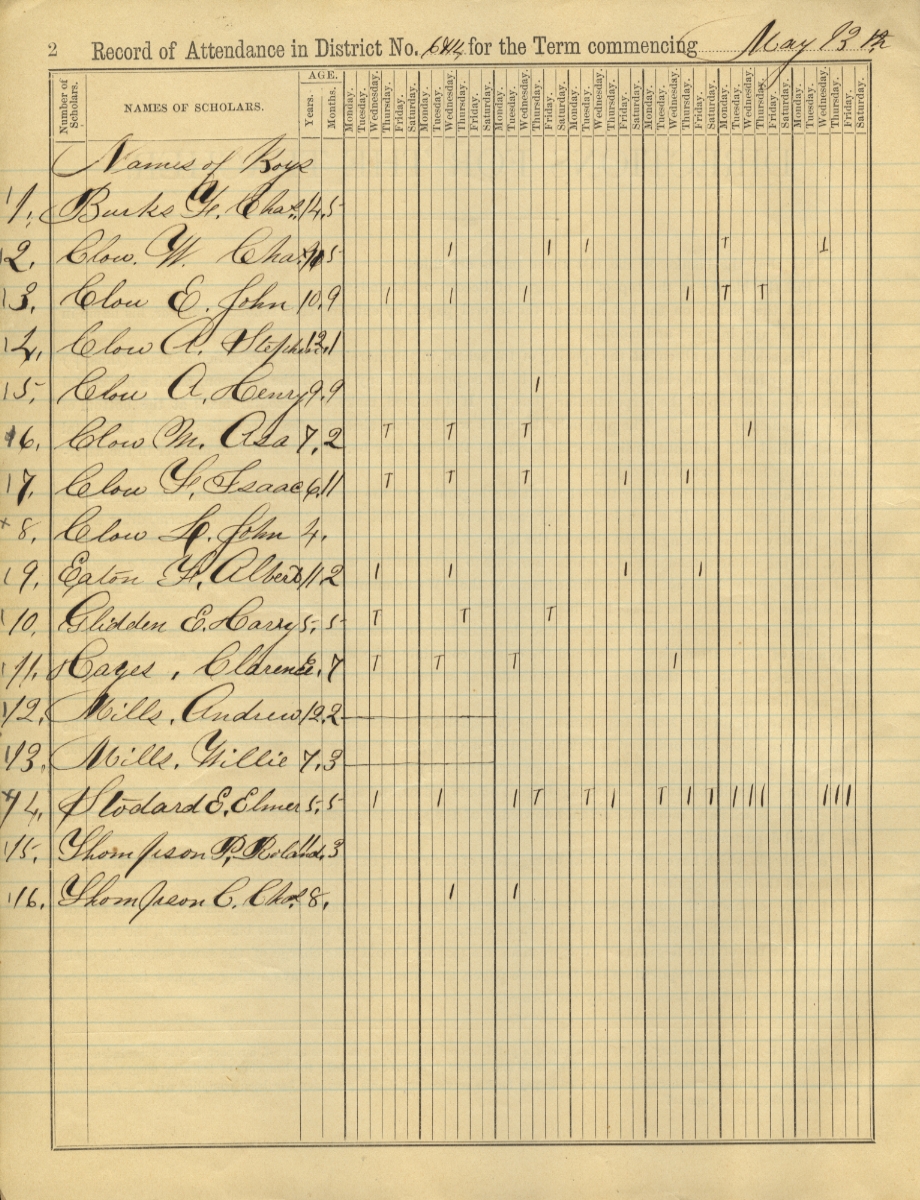 2 Record of Attendance in District No. 6&14 for the Term commencing May 13th
Number of Scholars. NAMES OF SCHOLARS. AGE. Years. Months. Monday. Tuesday. Wednesday. Thursday. Friday. Saturday. Monday. Tuesday. Wednesday. Thursday. Friday. Saturday. Monday. Tuesday. Wednesday. Thursday. Friday. Saturday. Monday. Tuesday. Wednesday. Thursday. Friday. Saturday. Monday. Tuesday. Wednesday. Thursday. Friday. Saturday. Monday. Tuesday. Wednesday. Thursday. Friday. Saturday. Monday. Tuesday. Wednesday. Thursday. Friday. Saturday.
Names of Boys
1. Burks F. Chas. 14.5
2. Clow. W. Chas. 5
3. Clow E. John 10.9 | | | | T T
4. Clow A. Stephen 12.1
5. Clow A. Henry 9.9 |
6. Clow M. Asa 7.2 T T T |
7. Clow F. Isaac 6.11 T T T | |
8. Clow L. John 4.
9. Eaton F. Albert 11.2 | | | |
10. Glidden E. Harry 5.5 T T T
11. Hayes, Clarence 6.7 T T T |
12. Mills, Andrew 12.2
13. Mills, Willie 7.3
14. Stodard E. Elmer 5.5 | | | T T | T | | | | | | | |
15. Thompson P. Roland. 11.3
16. Thompson C. Chas. 8. | |